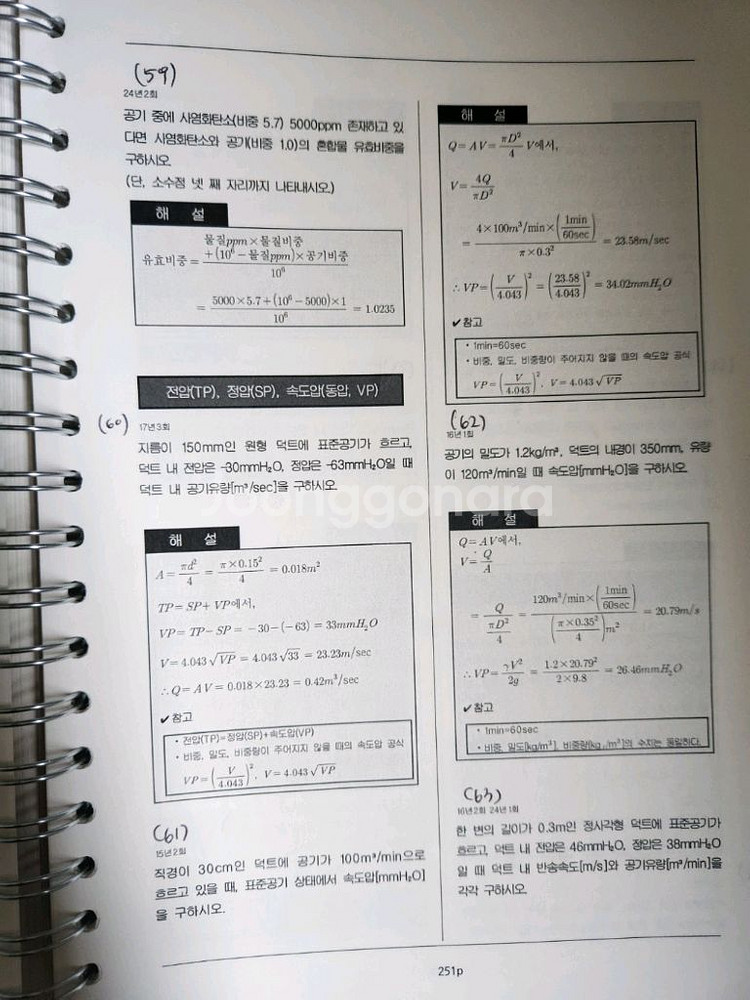 (59)
24년2회
공기 중에 사염화탄소(비중 5.7) 5000ppm 존재하고 있
다면 사염화탄소와 공기(비중 1.0)의 혼합물 유효비중을
구하시오.
(단, 소수점 넷 째 자리까지 나타내시오.)
해 설
유효비중 = (물질ppm × 물질비중 + (10⁶ − 물질ppm) × 공기비중) / 10⁶
= (5000×5.7+(10⁶−5000)×1) / 10⁶ = 1.0235
전압(TP), 정압(SP), 속도압(동압, VP)
(60)
17년3회
지름이 150mm인 원형 덕트에 표준공기가 흐르고,
덕트 내 전압은 -30mmH₂O, 정압은 -63mmH₂O일 때
덕트 내 공기유량[m³/sec]을 구하시오.
해 설
A = πd²/4 = π×0.15²/4 = 0.018m²
TP = SP + VP에서,
VP = TP − SP = −30 − (−63) = 33mmH₂O
V = 4.043√VP = 4.043√33 = 23.23m/sec
∴ Q = AV = 0.018×23.23 = 0.42m³/sec
✔참고
• 전압(TP)=정압(SP)+속도압(VP)
• 비중, 밀도, 비중량이 주어지지 않을 때의 속도압 공식
VP = (V/4.043)², V = 4.043√VP
(61)
15년2회
직경이 30cm인 덕트에 공기가 100m³/min으로
흐르고 있을 때, 표준공기 상태에서 속도압[mmH₂O]
을 구하시오.
해 설
Q = AV = πD²/4 V에서,
V = 4Q/πD²
= 4×100m³/min×(1min/60sec) / π×0.3² = 23.58m/sec
∴ VP = (V/4.043)² = (23.58/4.043)² = 34.02mmH₂O
✔참고
• 1min=60sec
• 비중, 밀도, 비중량이 주어지지 않을 때의 속도압 공식
VP = (V/4.043)², V = 4.043√VP
(62)
16년1회
공기의 밀도가 1.2kg/m³, 덕트의 내경이 350mm, 유량
이 120m³/min일 때 속도압[mmH₂O]을 구하시오.
해 설
Q = AV에서,
V = Q/A
= Q / (πD²/4) = 120m³/min×(1min/60sec) / (π×0.35²/4)m² = 20.79m/s
∴ VP = γV²/2g = 1.2×20.79² / 2×9.8 = 26.46mmH₂O
✔참고
• 1min=60sec
• 비중, 밀도[kg/m³], 비중량[kg_f/m³]의 수치는 동일하다.
(63)
16년2회 24년1회
한 변의 길이가 0.3m인 정사각형 덕트에 표준공기가
흐르고, 덕트 내 전압은 46mmH₂O, 정압은 38mmH₂O
일 때 덕트 내 반송속도[m/s]와 공기유량[m³/min]을
각각 구하시오.
251p
Joonggonara